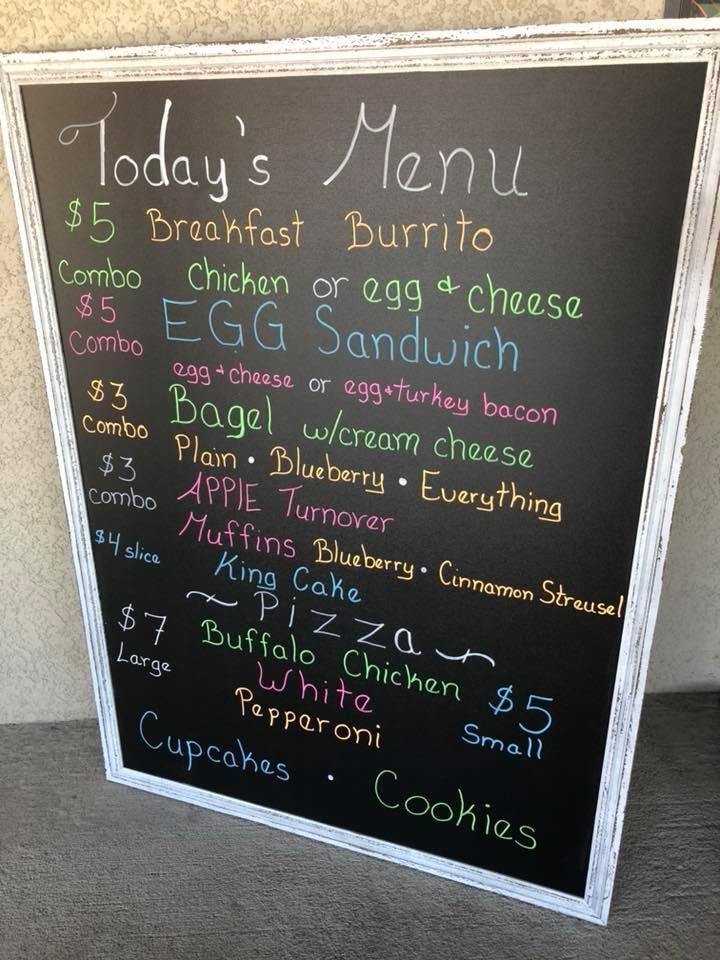 Today's Menu
$5 Breakfast Burrito
Combo Chicken or egg & cheese
$5 EGG Sandwich
Combo egg & cheese or egg & turkey bacon
$3 Bagel w/cream cheese
Combo Plain • Blueberry • Everything
$3 APPlE Turnover
Combo Muffins Blueberry • Cinnamon Streusel
$4 slice King Cake
~ Pizza ~
$7 Buffalo Chicken $5
Large White Small
Pepperoni
Cupcakes • Cookies